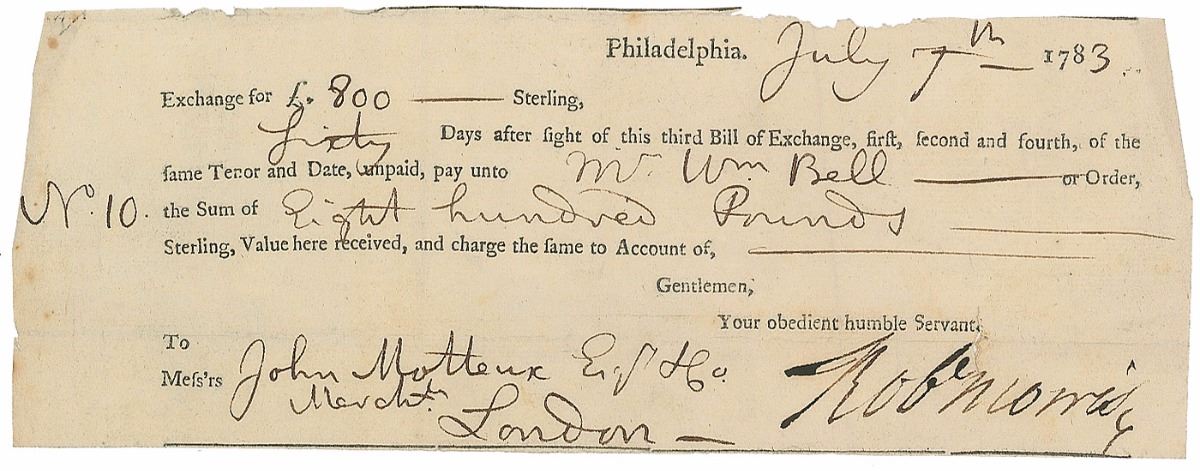 Philadelphia. July 7th 1783.
Exchange for £. 800 Sterling,
Sixty Days after ſight of this third Bill of Exchange, firſt, ſecond and fourth, of the
ſame Tenor and Date, (unpaid, pay unto Mr. Wm Bell or Order,
No. 10. the Sum of Eight hundred Pounds
Sterling, Value here received, and charge the ſame to Account of,
Gentlemen,
Your obedient humble Servant.
To
Meſs'rs John Motteux Esqr & Co.
Merchts.
London
Robt Morris